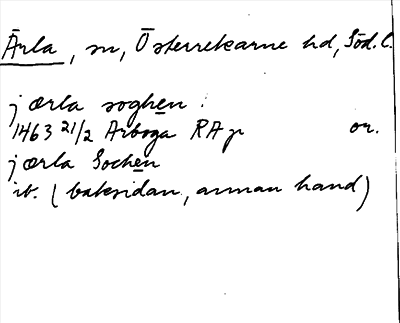 Ärla, sn, Österrekarne hd, Söd. l.
j ærla soghen.
1463 21/2 Arboga RA p or.
j ærla Sochen
ib. (baksidan, annan hand)